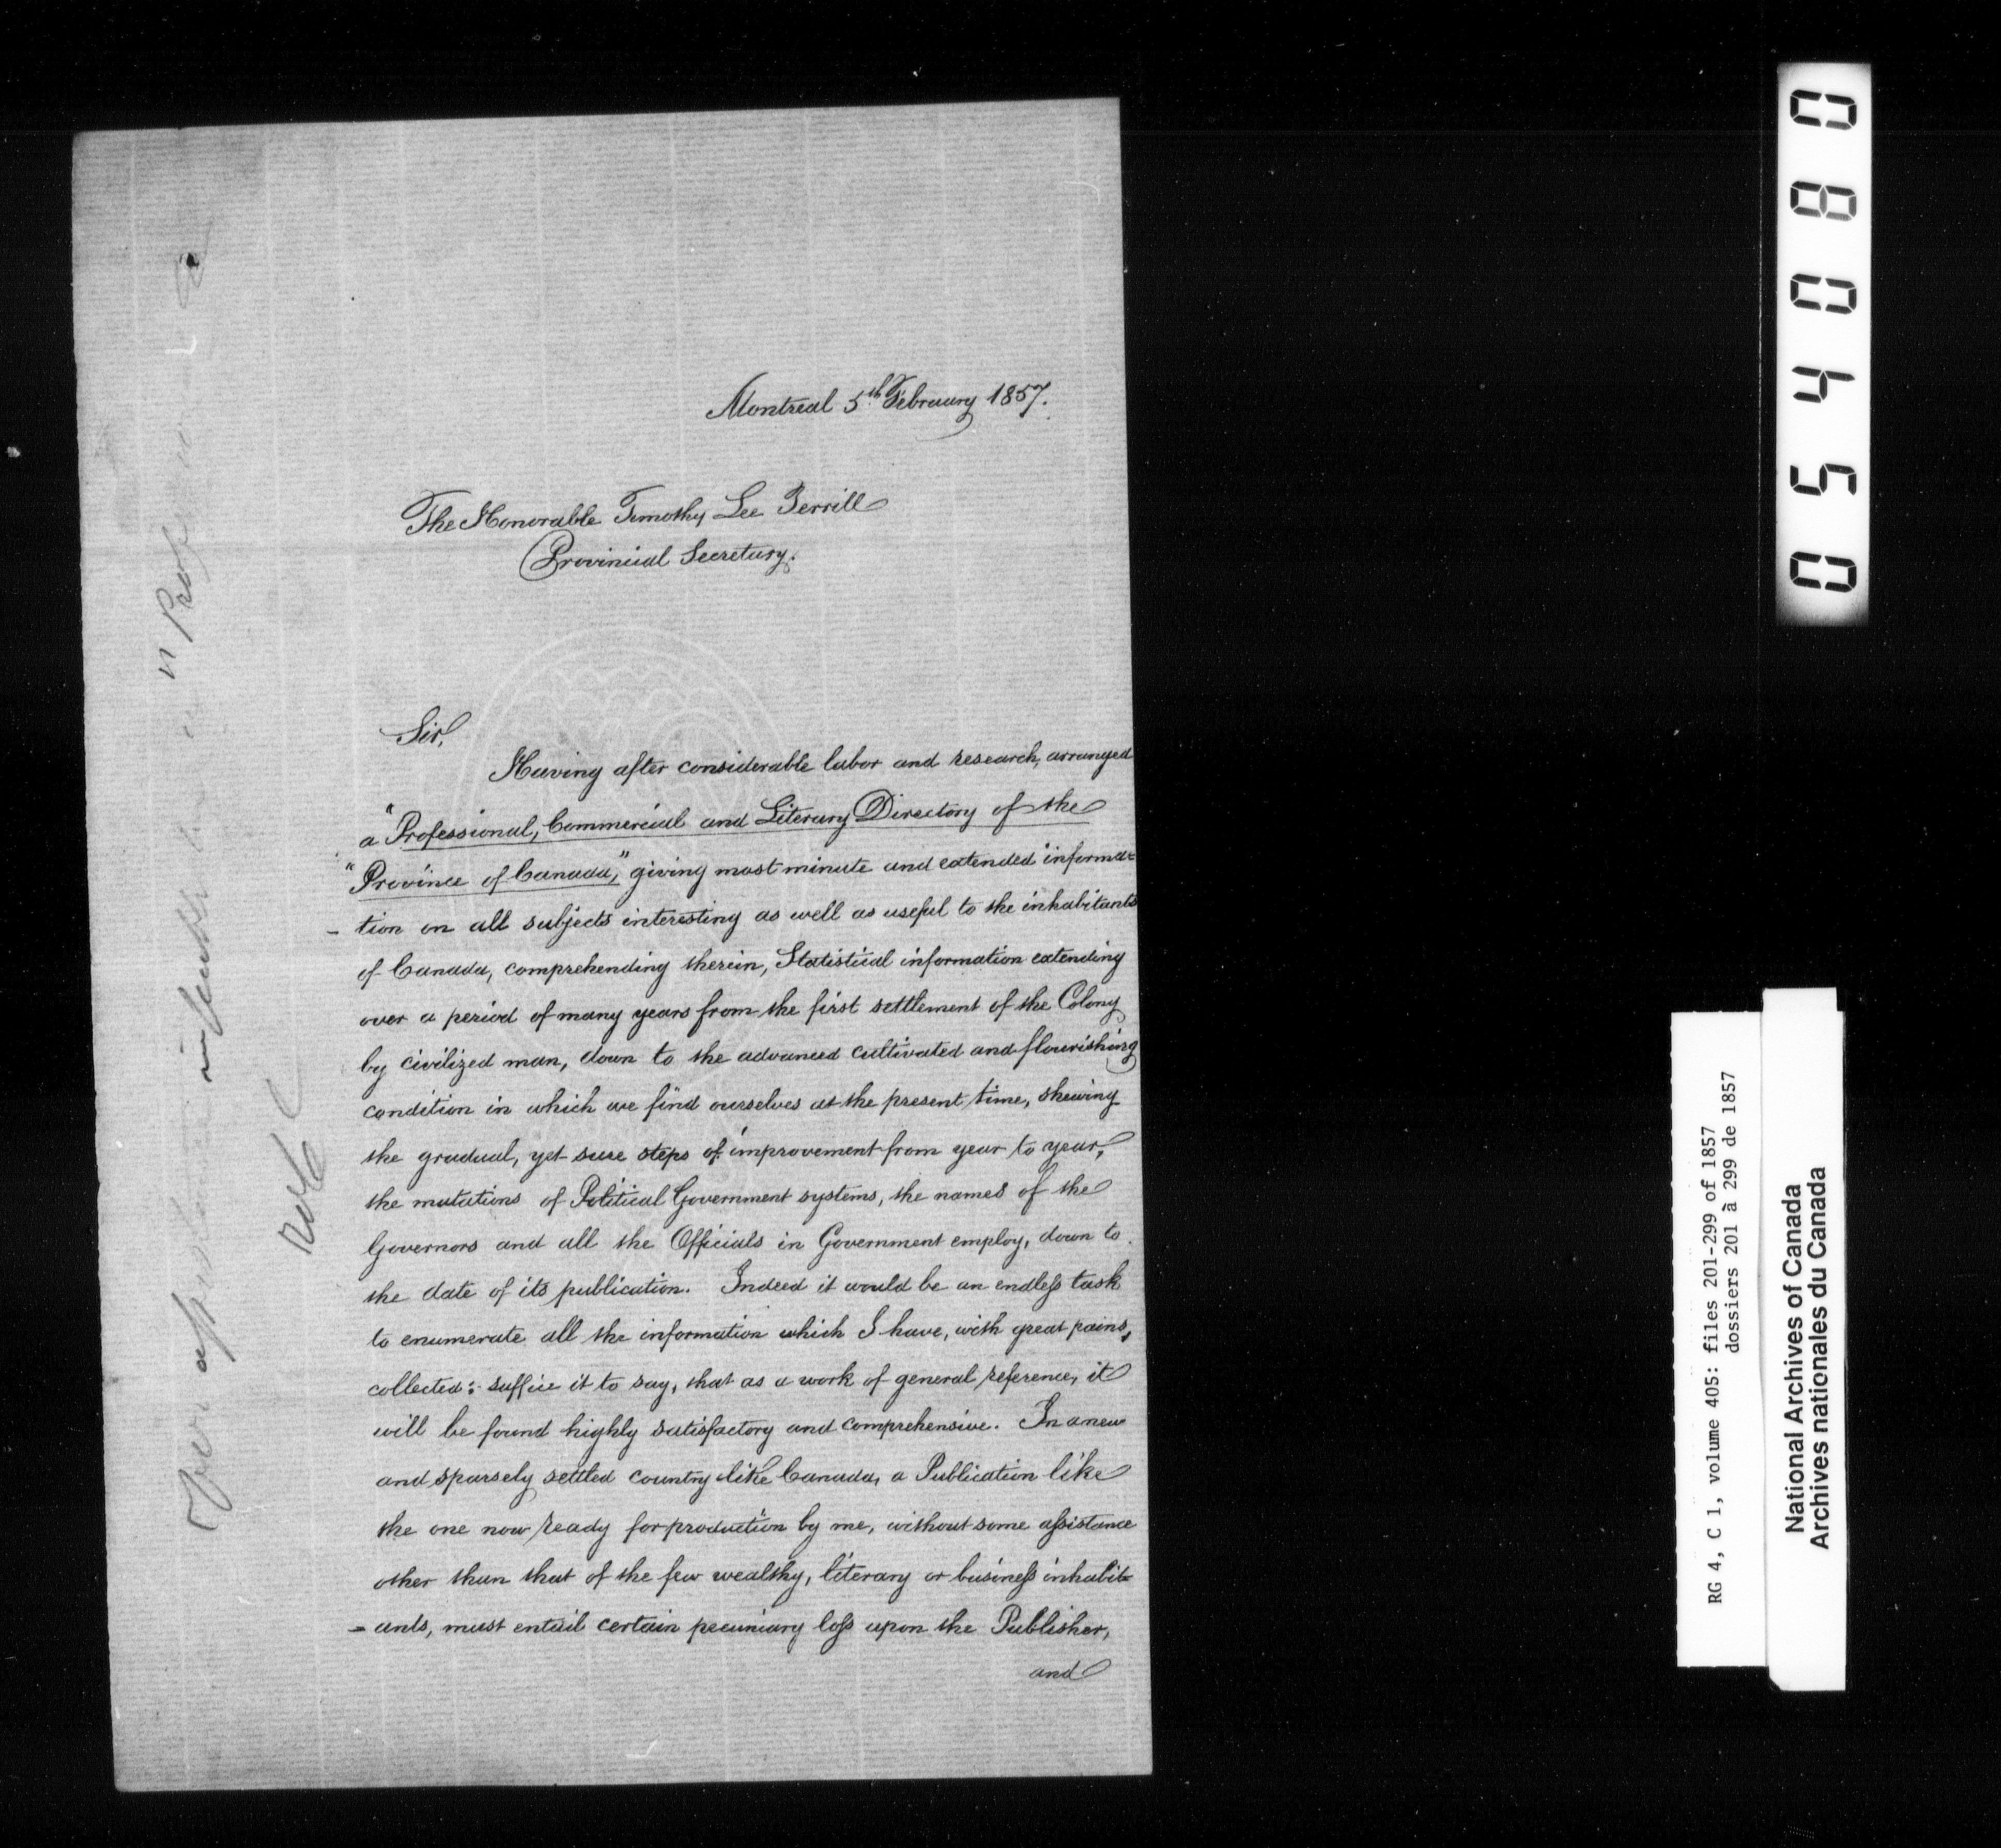 Montreal 5th February 1857.
The Honorable Timothy Lee Terrill
Provincial Secretary.
Sir,
Having after considerable labor and research, arranged
a "Professional, Commercial and Literary Directory of the
"Province of Canada," giving most minute and extended informa=
- tion on all subjects interesting as well as useful to the inhabitants
of Canada, comprehending therein, Statistical information extending
over a period of many years from the first settlement of the Colony
by civilized man, down to the advanced cultivated and flourishing
condition in which we find ourselves at the present time, shewing
the gradual, yet sure steps of improvement from year to year,
the mutations of Political Government systems, the names of the
Governors and all the Officials in Government employ, down to
the date of its publication. Indeed it would be an endless task
to enumerate all the information which I have, with great pains,
collected: suffice it to say, that as a work of general reference, it
will be found highly satisfactory and comprehensive. In a new
and sparsely settled country like Canada, a Publication like
the one now ready for production by me, without some assistance
other than that of the few wealthy, literary or business inhabit=
= ants, must entail certain pecuniary loss upon the Publisher,
and
054080
RG 4, C 1, volume 405: files 201-299 of 1857
dossiers 201 à 299 de 1857
National Archives of Canada
Archives nationales du Canada